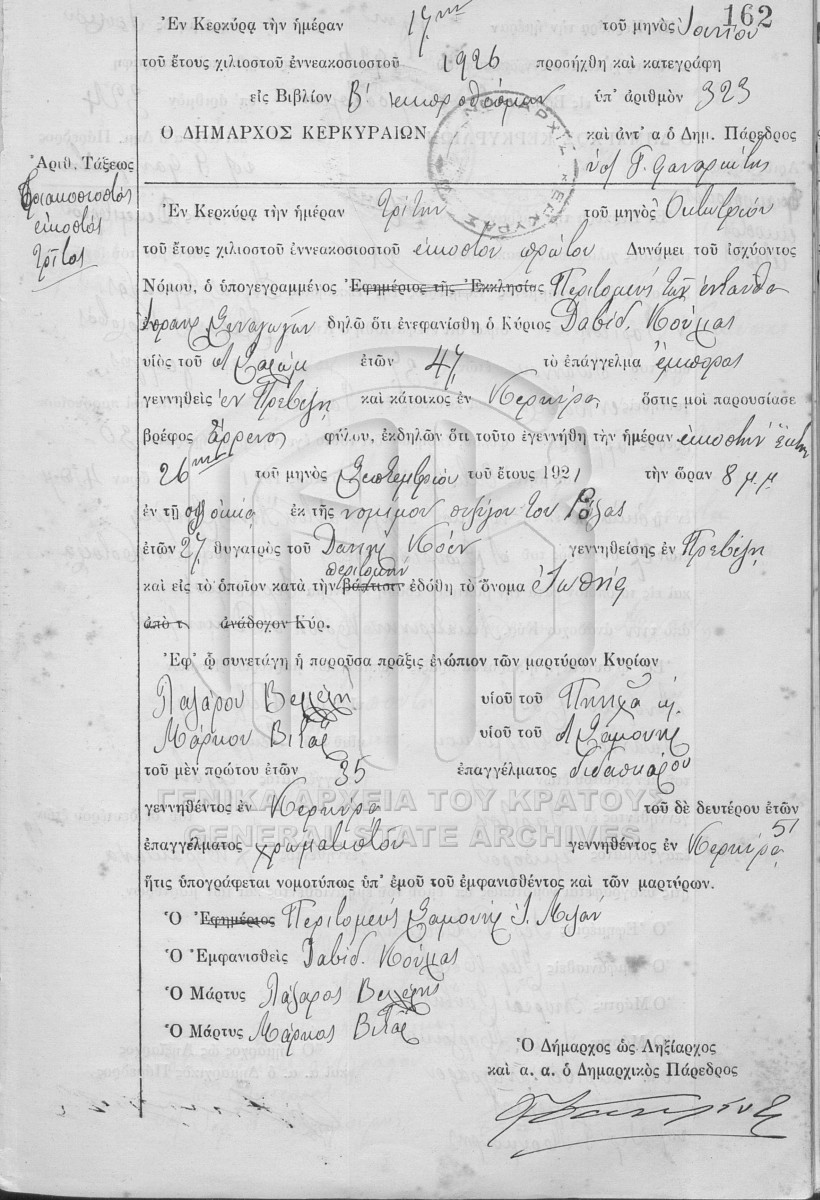 162
Ἐν Κερκύρᾳ τὴν ἡμέραν 17ην τοῦ μηνὸς
τοῦ ἔτους χιλιοστοῦ ἐννεακοσιοστοῦ 1926 προσήχθη καὶ κατεγράφη
εἰς Βιβλίον Β! ἐκπροθέσμων ὑπ' ἀριθμὸν 323
Ο ΔΗΜΑΡΧΟΣ ΚΕΡΚΥΡΑΙΩΝ καὶ ἀντ' α ὁ Δημ. Πάρεδρος
Ἀριθ. Τάξεως
Τριακοσιοστὸς
εἰκοστὸς
τρίτος
Ἐν Κερκύρᾳ τὴν ἡμέραν τρίτην τοῦ μηνὸς Ὀκτωβρίου
τοῦ ἔτους χιλιοστοῦ ἐννεακοσιοστοῦ εἰκοστοῦ πρώτου Δυνάμει τοῦ ἰσχύοντος
Νόμου, ὁ ὑπογεγραμμένος Ἐφημέριος τῆς Ἐκκλησίας Περιτομεὺς τῶν ἐνταῦθα
Συναγωγῶν δηλῶ ὅτι ἐνεφανίσθη ὁ Κύριος Δαβὶδ Κούλιας
υἱὸς τοῦ ἐτῶν 47 τὸ ἐπάγγελμα ἔμπορος
γεννηθεὶς ἐν Πρεβέζῃ καὶ κάτοικος ἐν Κερκύρᾳ ὅστις μοὶ παρουσίασε
βρέφος ἄρρενος φύλου, ἐκδηλῶν ὅτι τοῦτο ἐγεννήθη τὴν ἡμέραν εἰκοστὴν ἕκτην
26ην τοῦ μηνὸς Σεπτεμβρίου τοῦ ἔτους 1921 τὴν ὥραν 8 μ.μ.
ἐν τῇ οἰκίᾳ ἐκ τῆς νομίμου συζύγου του Ρόζας
ἐτῶν 27 θυγατρὸς τοῦ Δανιὴλ Κοὲν γεννηθείσης ἐν Πρεβέζῃ
περιτομὴν
καὶ εἰς τὸ ὁποῖον κατὰ τὴν βάπτισιν ἐδόθη τὸ ὄνομα Ἰωσὴφ
ἀπὸ τ ἀνάδοχον Κύρ.
Ἐφ' ᾧ συνετάγη ἡ παροῦσα πρᾶξις ἐνώπιον τῶν μαρτύρων Κυρίων
Λαζάρου Βελλέλη υἱοῦ τοῦ
Μάρκου Βιτάλ υἱοῦ τοῦ Σαμουὴλ
τοῦ μὲν πρώτου ἐτῶν 35 ἐπαγγέλματος διδασκάλου
γεννηθέντος ἐν Κερκύρᾳ τοῦ δὲ δευτέρου ἐτῶν
51
ἐπαγγέλματος χρωματιστοῦ γεννηθέντος ἐν Κερκύρᾳ
ἥτις ὑπογράφεται νομοτύπως ὑπ' ἐμοῦ τοῦ ἐμφανισθέντος καὶ τῶν μαρτύρων.
Ὁ Ἐφημέριος Περιτομεὺς Σαμουὴλ Ἰ.
Ὁ Ἐμφανισθεὶς Δαβὶδ Κούλιας
Ὁ Μάρτυς Λάζαρος Βελλέλης
Ὁ Μάρτυς Μάρκος Βιτάλ
Ὁ Δήμαρχος ὡς Ληξίαρχος
καὶ α. α. ὁ Δημαρχικὸς Πάρεδρος
ΓΕΝΙΚΑ ΑΡΧΕΙΑ ΤΟΥ ΚΡΑΤΟΥΣ
GENERAL STATE ARCHIVES